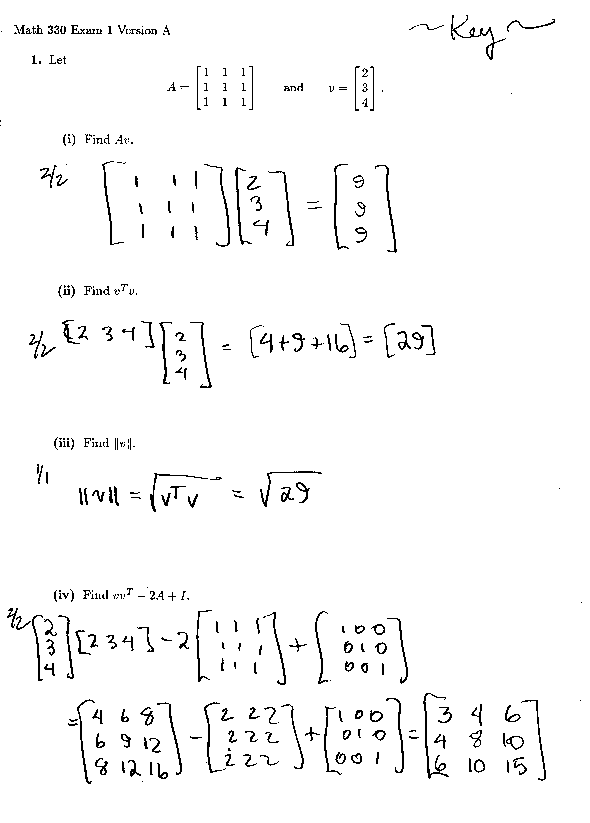 Math 330 Exam 1 Version A
~Key~
1. Let
A = [1 1 1; 1 1 1; 1 1 1] and v = [2; 3; 4].
(i) Find Av.
2/2 [1 1 1; 1 1 1; 1 1 1] [2; 3; 4] = [9; 9; 9]
(ii) Find vᵀv.
2/2 [2 3 4] [2; 3; 4] = [4+9+16] = [29]
(iii) Find ‖v‖.
1/1
‖v‖ = √(vᵀv) = √29
(iv) Find vvᵀ − 2A + I.
2/2 [2; 3; 4] [2 3 4] − 2 [1 1 1; 1 1 1; 1 1 1] + [1 0 0; 0 1 0; 0 0 1]
= [4 6 8; 6 9 12; 8 12 16] − [2 2 2; 2 2 2; 2 2 2] + [1 0 0; 0 1 0; 0 0 1] = [3 4 6; 4 8 10; 6 10 15]